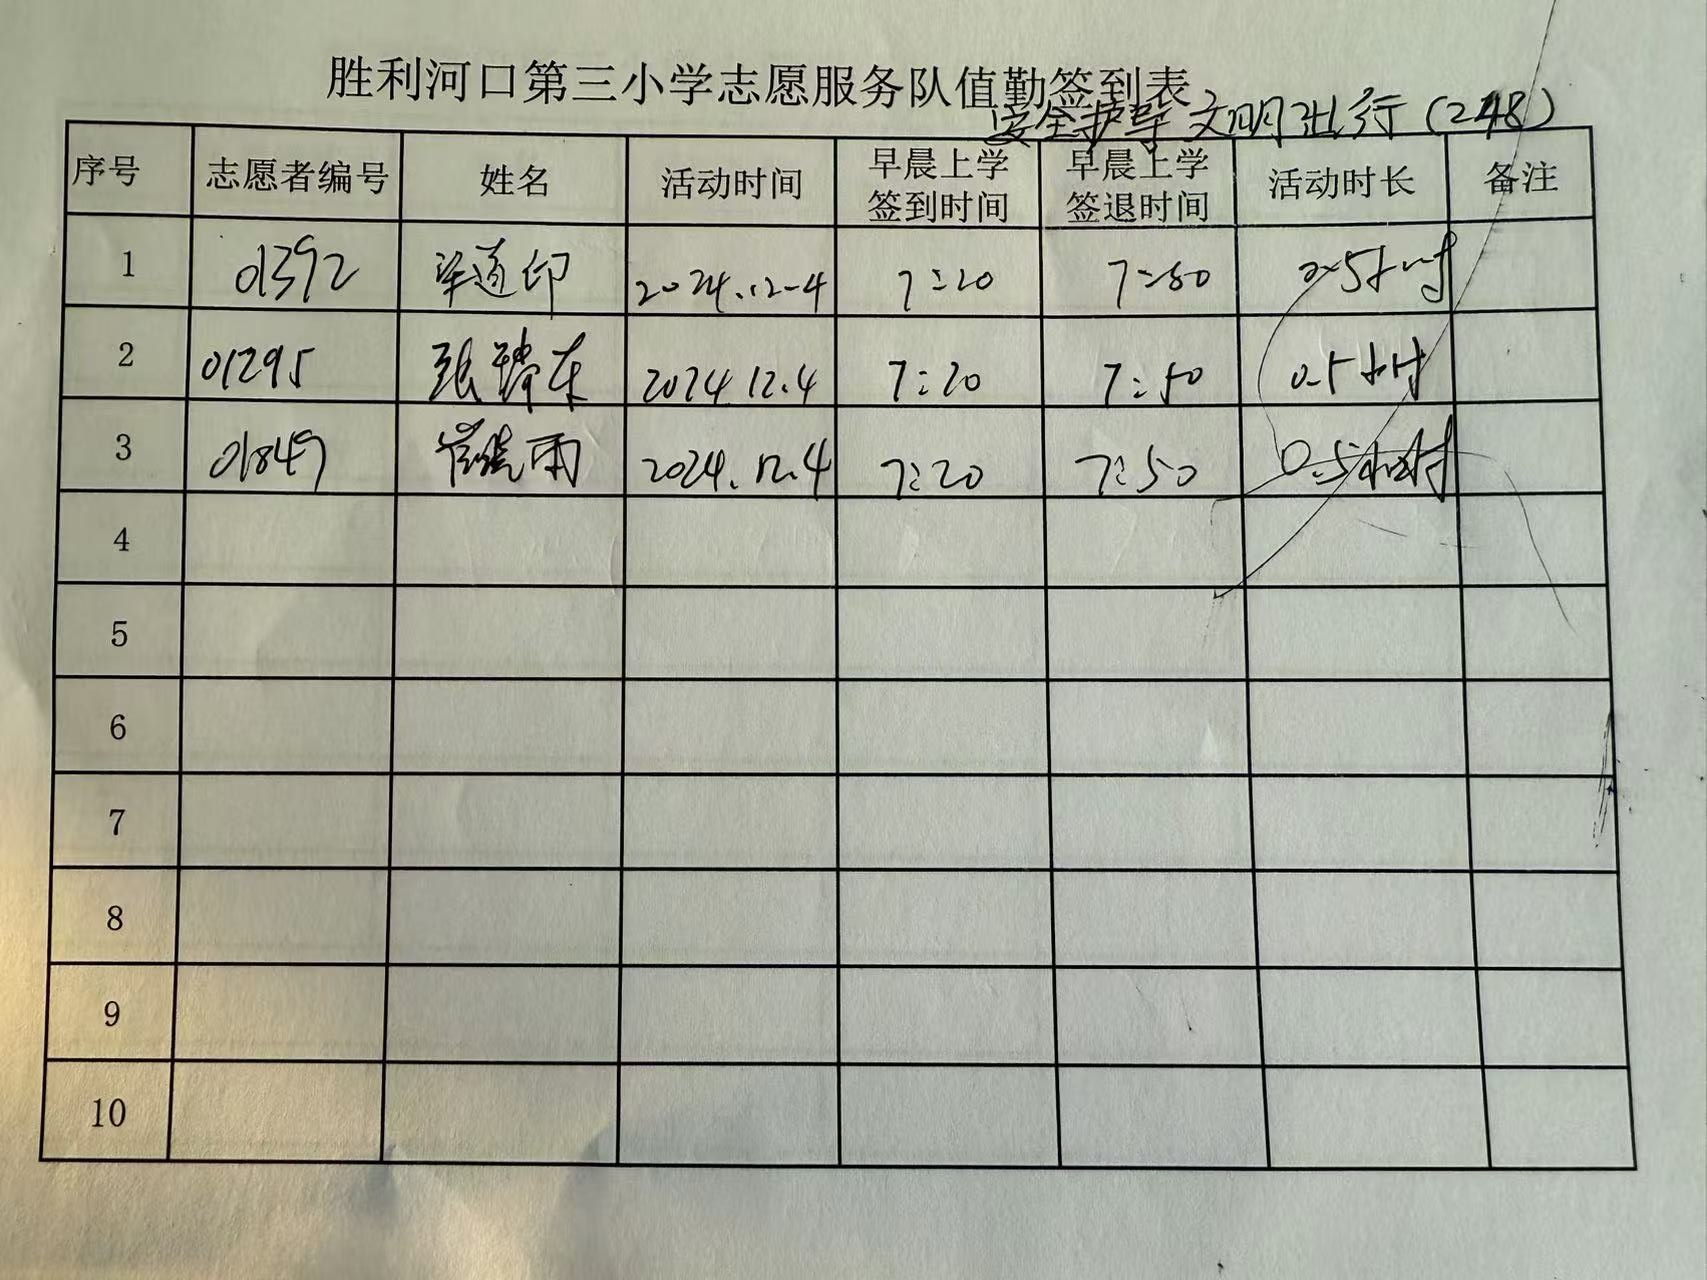 胜利河口第三小学志愿服务队值勤签到表
安全护导 文明出行(248)
序号 志愿者编号 姓名 活动时间 早晨上学签到时间 早晨上学签退时间 活动时长 备注
1 01392 道印 2024.12.4 7:20 7:50 0.5小时
2 01295 张 东 2024.12.4 7:20 7:50 0.5小时
3 01849 崔晓雨 2024.12.4 7:20 7:50 0.5小时
4
5
6
7
8
9
10